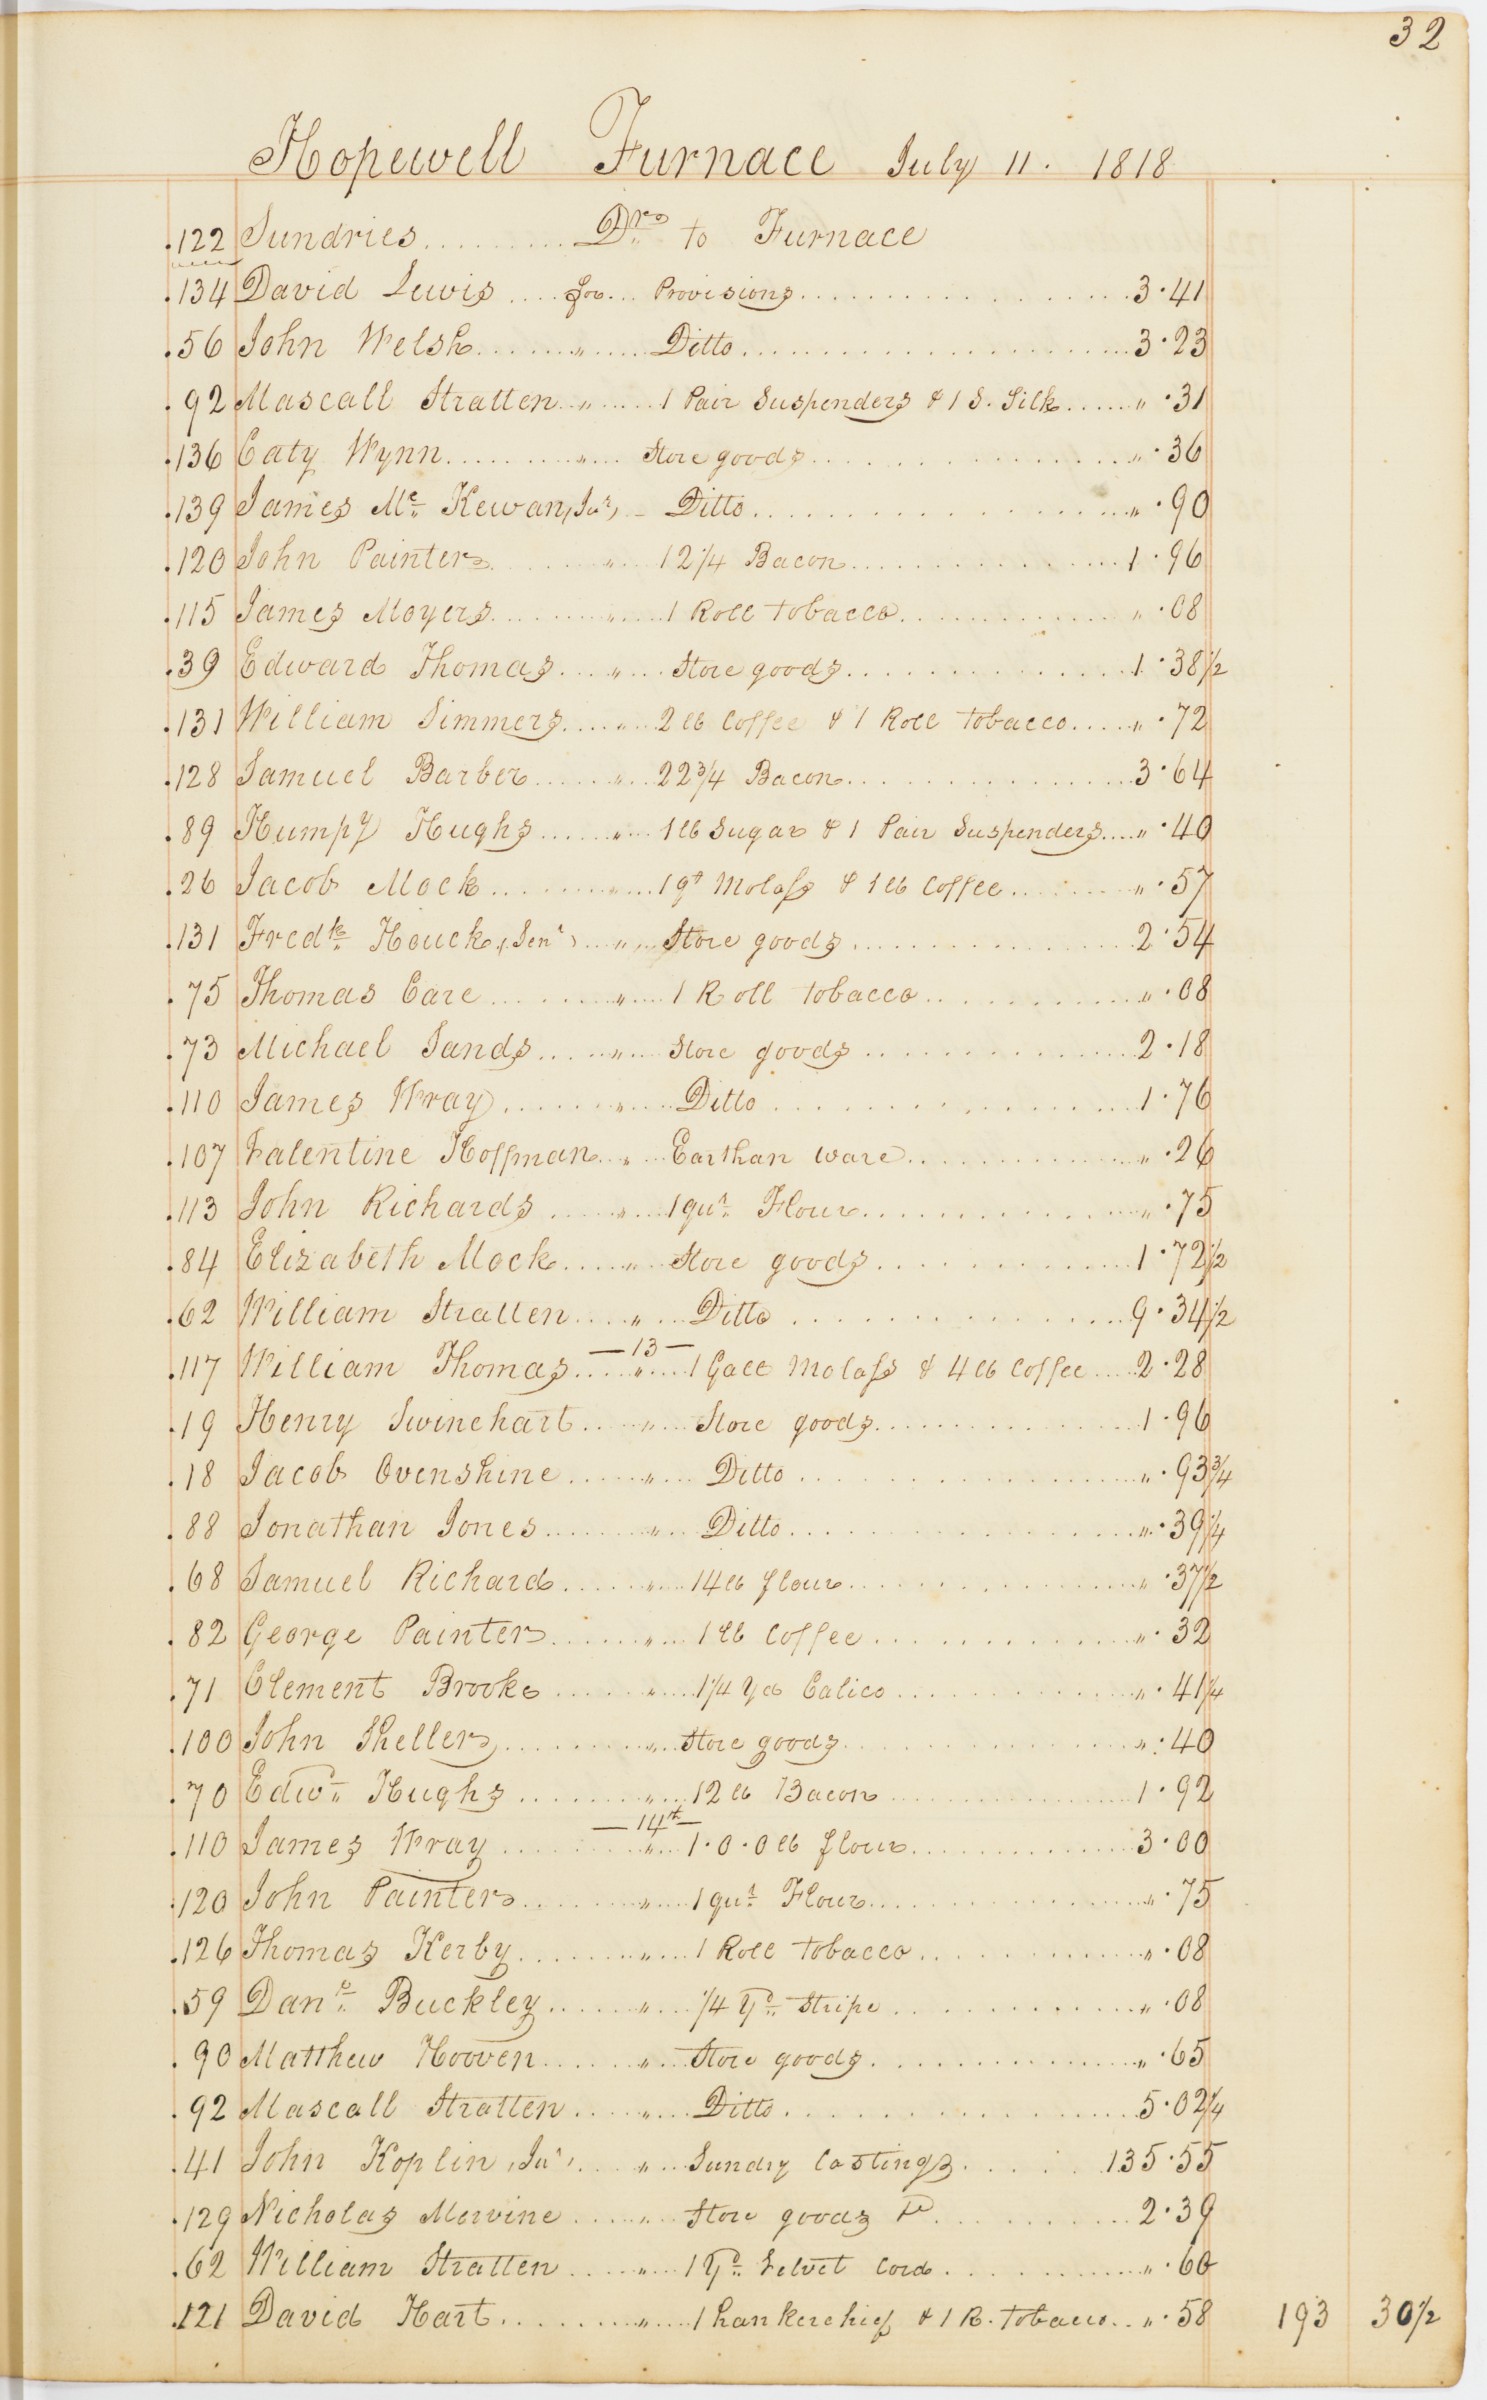 32
Hopewell Furnace July 11. 1818
.122 Sundries.......... Drs to Furnace
.134 David Lewis .... for... Provisions................ 3.41
.56 John Welsh......"..... Ditto................ 3.23
.92 Mascall Stratten.."......1 Pair Suspenders & 1 S. Silk......".31
.136 Caty Wynn.........".... Store goods................".36
.139 James Mc Kewan, Jur, .. Ditto................".90
.120 John Painter........".... 12 1/4 Bacon................1.96
.115 James Moyers.......".....1 Roll tobacco............".08
.39 Edward Thomas...."....Store goods............1.38 1/2
.131 William Simmers....."...2 lb Coffee & 1 Roll tobacco.....".72
.128 Samuel Barber......"...22 3/4 Bacon................3.64
.89 Humpy Hughs......"...1 lb Sugar & 1 Pair Suspenders....".40
.26 Jacob Mock........"....1 qt Molass & 1 lb Coffee........".57
.131 Fredk Houck, Senr, ...."...Store goods............2.54
.75 Thomas Care........"....1 Roll tobacco............".08
.73 Michael Sands....."....Store goods............2.18
.110 James Wray........"....Ditto................1.76
.107 Valentine Hoffman.."....Earthan ware............".26
.113 John Richards......"....1 qur Flour............".75
.84 Elizabeth Mock....."....Store goods............1.72 1/2
.62 William Stratten....."....Ditto................9.34 1/2
—13—
.117 William Thomas....."....1 Gall Molass & 4 lb Coffee.....2.28
.19 Henry Swinehart....."....Store goods............1.96
.18 Jacob Ovenshine......".... Ditto................".93 3/4
.88 Jonathan Jones......".... Ditto................".39 1/4
.68 Samuel Richard......"....14 lb flour............".37 1/2
.82 George Painter......"....1 lb Coffee............".32
.71 Clement Brooke......"....1 1/4 Yd Calico............".41 1/4
.100 John Sheller........"...Store goods............".40
.70 Edwd Hughs........"....12 lb Bacon............1.92
—14th—
.110 James Wray........"....1.0.0 lb flour............3.00
.120 John Painter......"....1 qur Flour............".75
.126 Thomas Kerby......"....1 Roll tobacco............".08
.59 Danl Buckley......"....1/4 Yd Stripe............".08
.90 Matthew Hooven......"...Store goods............".65
.92 Mascall Stratten....."....Ditto................5.02 1/4
.41 John Koplin, Jur,...."...Sundry Castings......135.55
.129 Nicholas Mervine....."...Store goods...........2.39
.62 William Stratten....."...1 Yd Velvet Cord............".60
.121 David Hart........."....1 hankerchief & 1 R. tobacco..".58 193 30 1/2